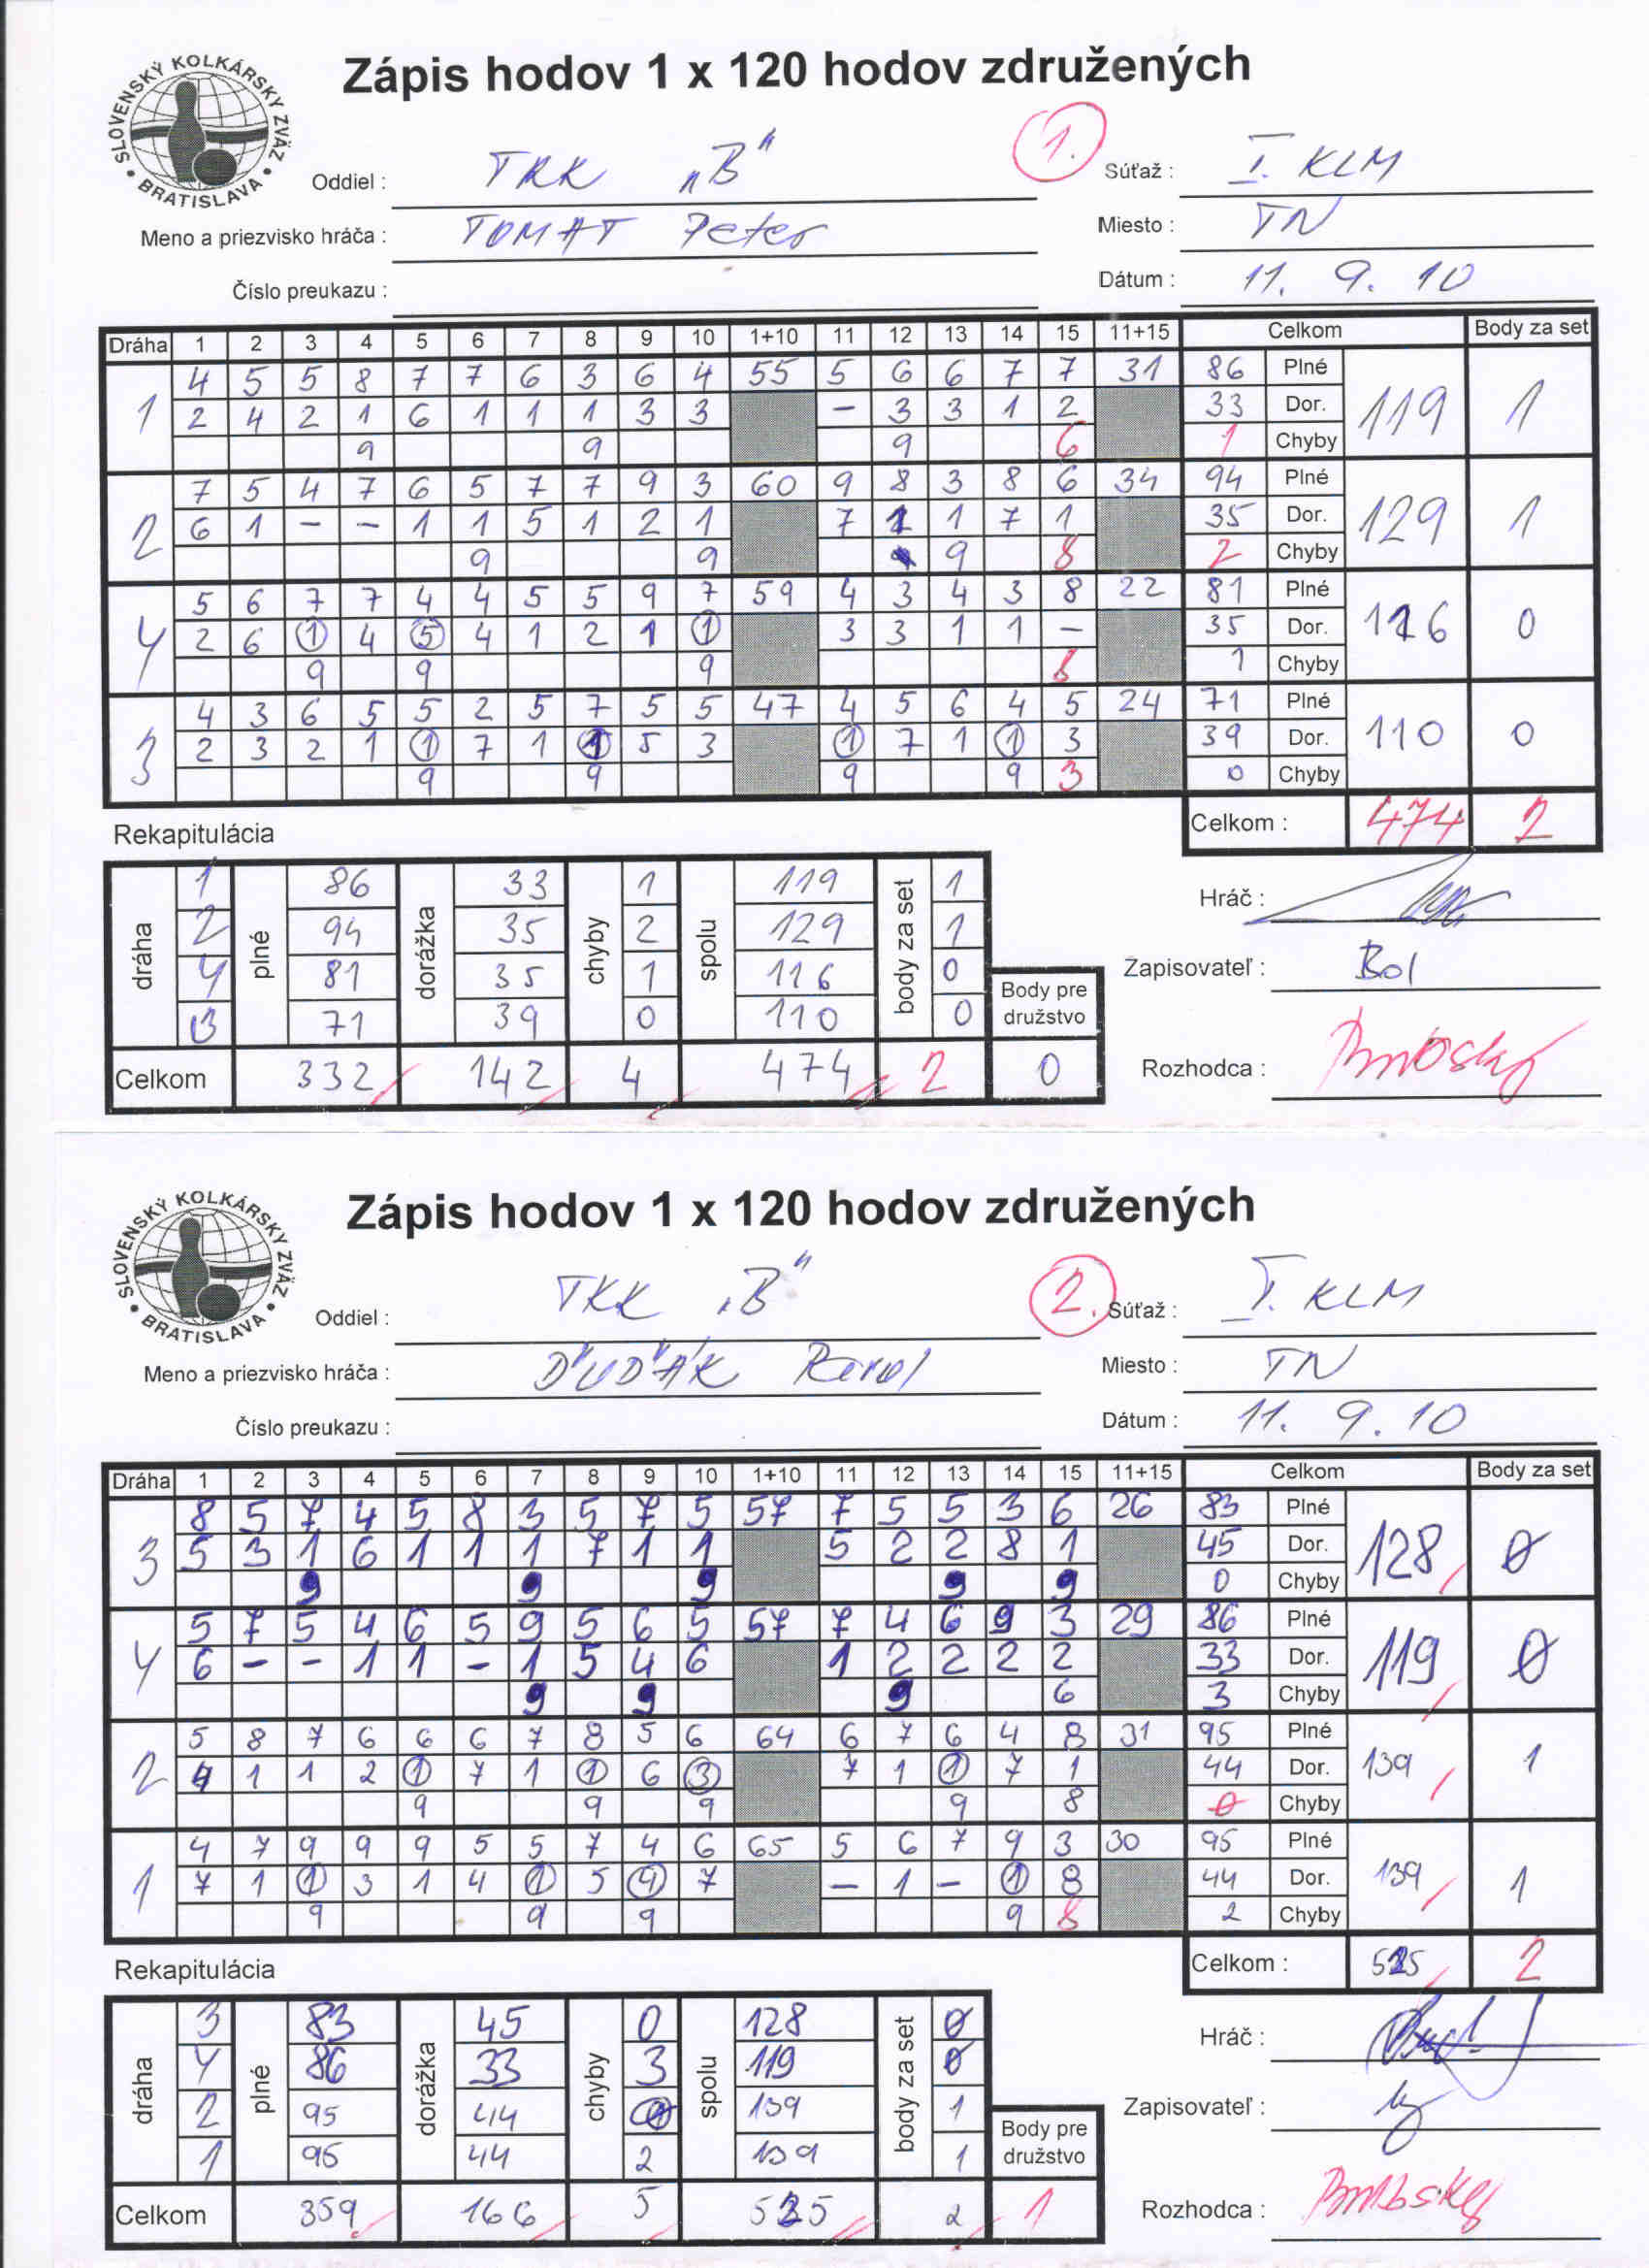 SLOVENSKÝ KOLKÁRSKY ZVÄZ • BRATISLAVA •
Zápis hodov 1 x 120 hodov združených
1.
Oddiel : TKK „B"
Súťaž : I. KLM
Meno a priezvisko hráča : TOMAT Peter
Miesto : TN
Číslo preukazu :
Dátum : 11. 9. 10
Dráha 1 2 3 4 5 6 7 8 9 10 1+10 11 12 13 14 15 11+15 Celkom Body za set
4 5 5 8 7 7 6 3 6 4 55 5 6 6 7 7 31 86 Plné
1 2 4 2 1 6 1 1 1 3 3 – 3 3 1 2 33 Dor. 119 1
9 9 9 6 1 Chyby
7 5 4 7 6 5 7 7 9 3 60 9 8 3 8 6 34 94 Plné
2 6 1 – – 1 1 5 1 2 1 7 1 1 7 1 35 Dor. 129 1
9 9 9 8 2 Chyby
5 6 7 7 4 4 5 5 9 7 59 4 3 4 3 8 22 81 Plné
4 2 6 1 4 5 4 1 2 1 1 3 3 1 1 – 35 Dor. 116 0
9 9 9 8 1 Chyby
4 3 6 5 5 2 5 7 5 5 47 4 5 6 4 5 24 71 Plné
3 2 3 2 1 1 7 1 1 5 3 1 7 1 1 3 39 Dor. 110 0
9 9 9 9 3 0 Chyby
Celkom : 474 2
Rekapitulácia
dráha plné dorážka chyby spolu body za set
1 86 33 1 119 1
2 94 35 2 129 1
4 81 35 1 116 0
3 71 39 0 110 0
Body pre družstvo
Celkom 332 142 4 474 2 0
Hráč :
Zapisovateľ : Bol
Rozhodca :
SLOVENSKÝ KOLKÁRSKY ZVÄZ • BRATISLAVA •
Zápis hodov 1 x 120 hodov združených
2.
Oddiel : TKK „B"
Súťaž : I. KLM
Meno a priezvisko hráča : ĎUĎÁK Karol
Miesto : TN
Číslo preukazu :
Dátum : 11. 9. 10
Dráha 1 2 3 4 5 6 7 8 9 10 1+10 11 12 13 14 15 11+15 Celkom Body za set
8 5 7 4 5 8 3 5 7 5 57 7 5 5 3 6 26 83 Plné
3 5 3 1 6 1 1 1 7 1 1 5 2 2 8 1 45 Dor. 128 0
9 9 9 9 9 0 Chyby
5 7 5 4 6 5 9 5 6 5 57 7 4 6 9 3 29 86 Plné
4 6 – – 1 1 – 1 5 4 6 1 2 2 2 2 33 Dor. 119 0
9 9 9 6 3 Chyby
5 8 7 6 6 6 7 8 5 6 64 6 7 6 4 8 31 95 Plné
2 4 1 1 2 1 7 1 1 6 3 7 1 1 7 1 44 Dor. 139 1
9 9 9 9 8 0 Chyby
4 7 9 9 9 5 5 7 4 6 65 5 6 7 9 3 30 95 Plné
1 7 1 1 3 1 4 1 5 4 7 – 1 – 1 8 44 Dor. 139 1
9 9 9 9 8 2 Chyby
Celkom : 525 2
Rekapitulácia
dráha plné dorážka chyby spolu body za set
3 83 45 0 128 0
4 86 33 3 119 0
2 95 44 0 139 1
1 95 44 2 139 1
Body pre družstvo
Celkom 359 166 5 525 2 1
Hráč :
Zapisovateľ :
Rozhodca :